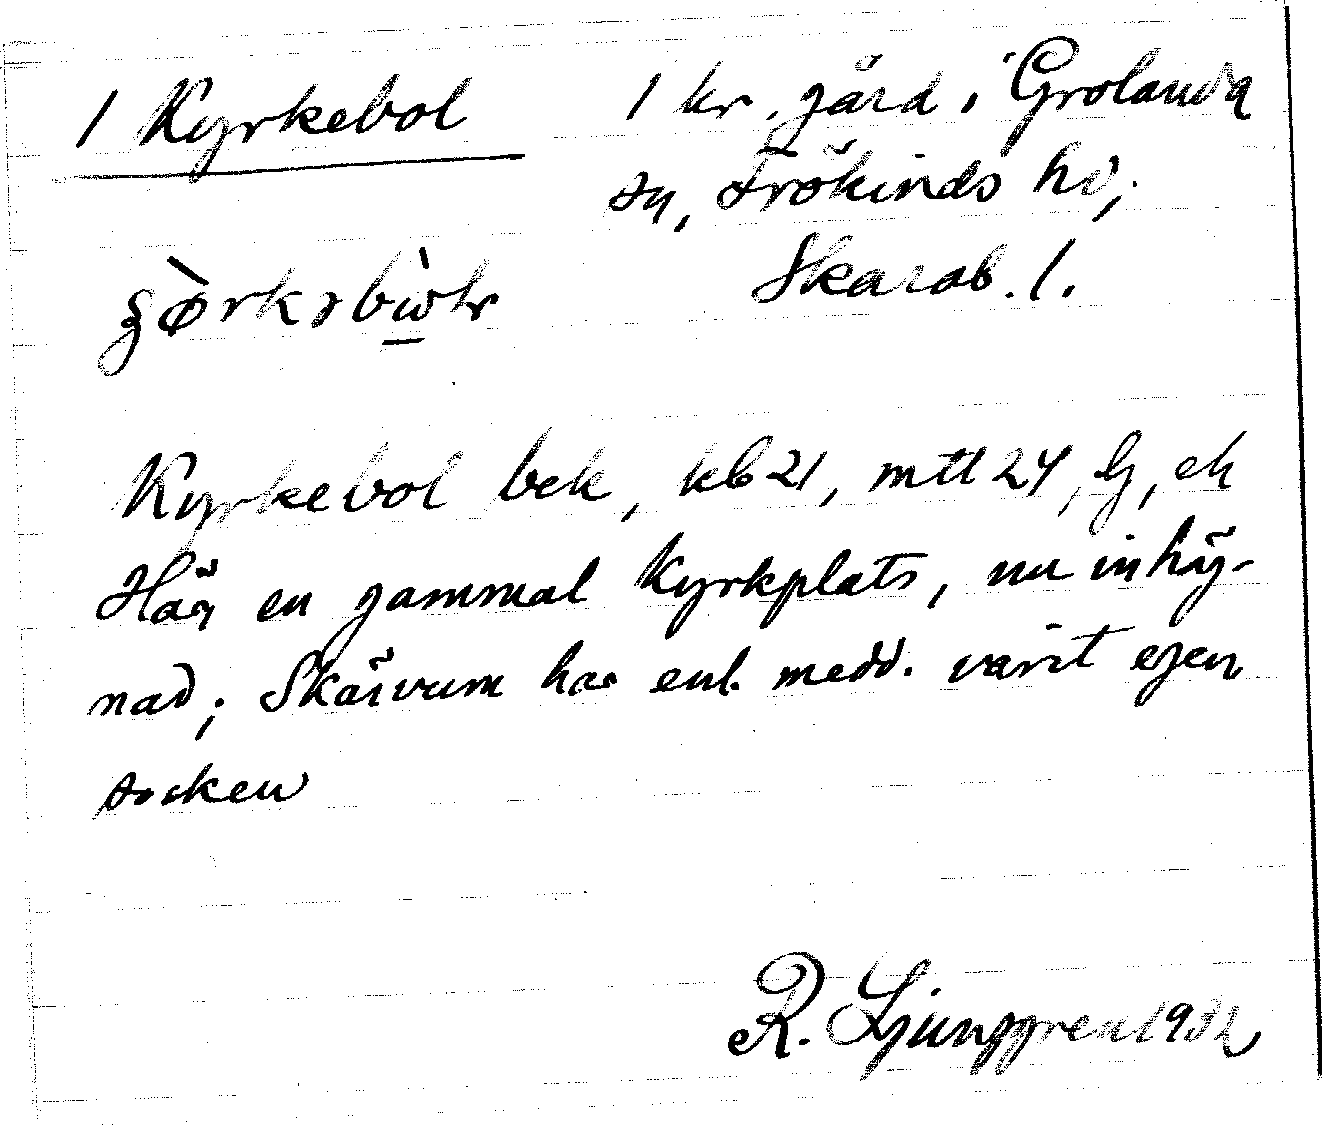 1 Kyrkebol
1 kr. gård i Grolanda
sn, Frökinds hd,
Skarab. l.
Kyrkebol bek, kb 21, mtl 24, lj, ek
Här en gammal kyrkplats, nu inhäg-
nad; Skärvum har enl. medd. varit egen
socken
R. Ljunggren 1932